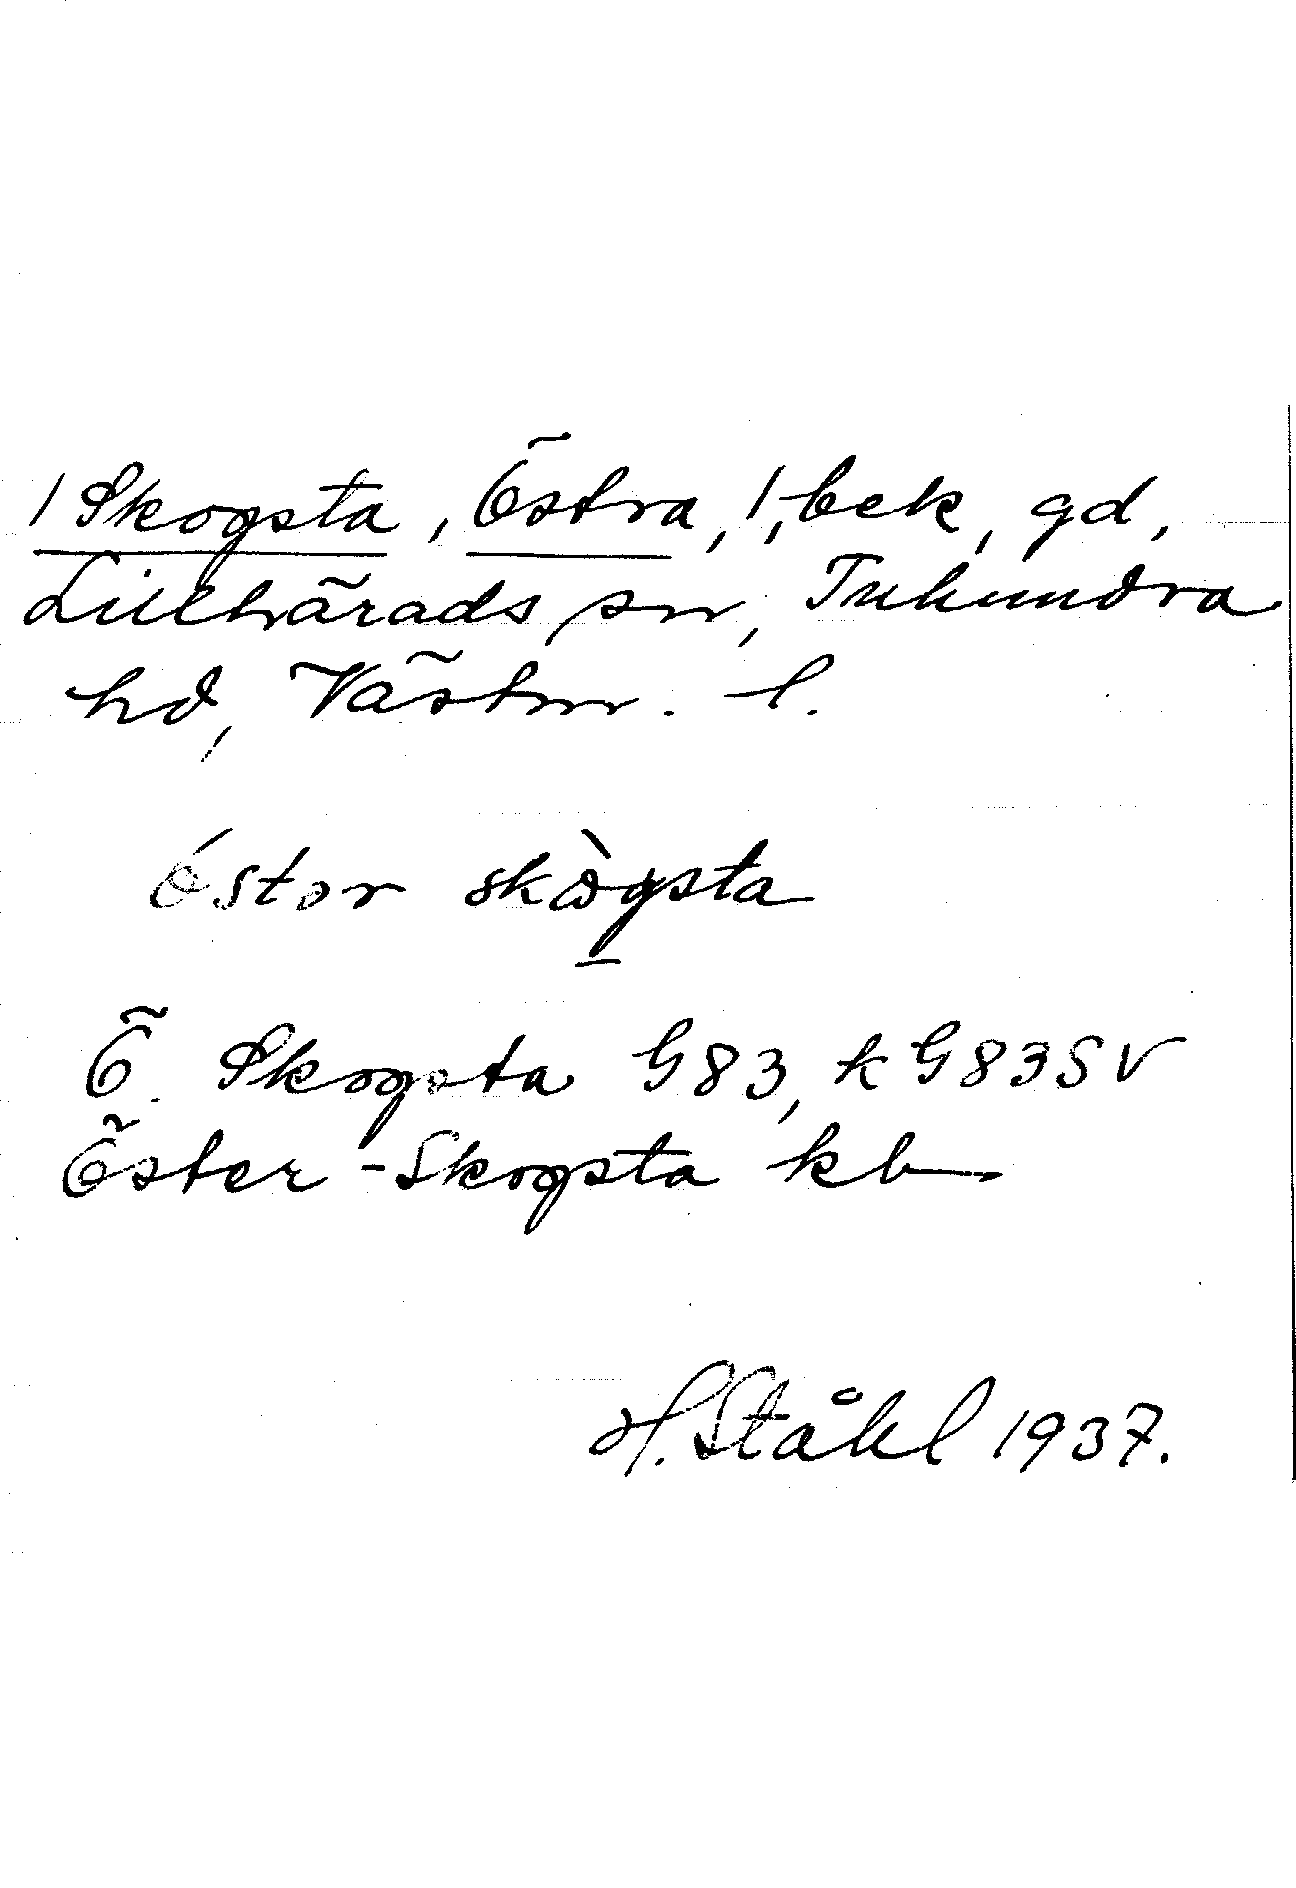 /Skogsta, Östra, /, bek, gd,
Lillhärads sn, Tuhundra
hd, Västm. l.
östər skògsta
Ö. Skogsta G83, k G83SV
Öster-Skogsta kb.
H. Ståhl 1937.